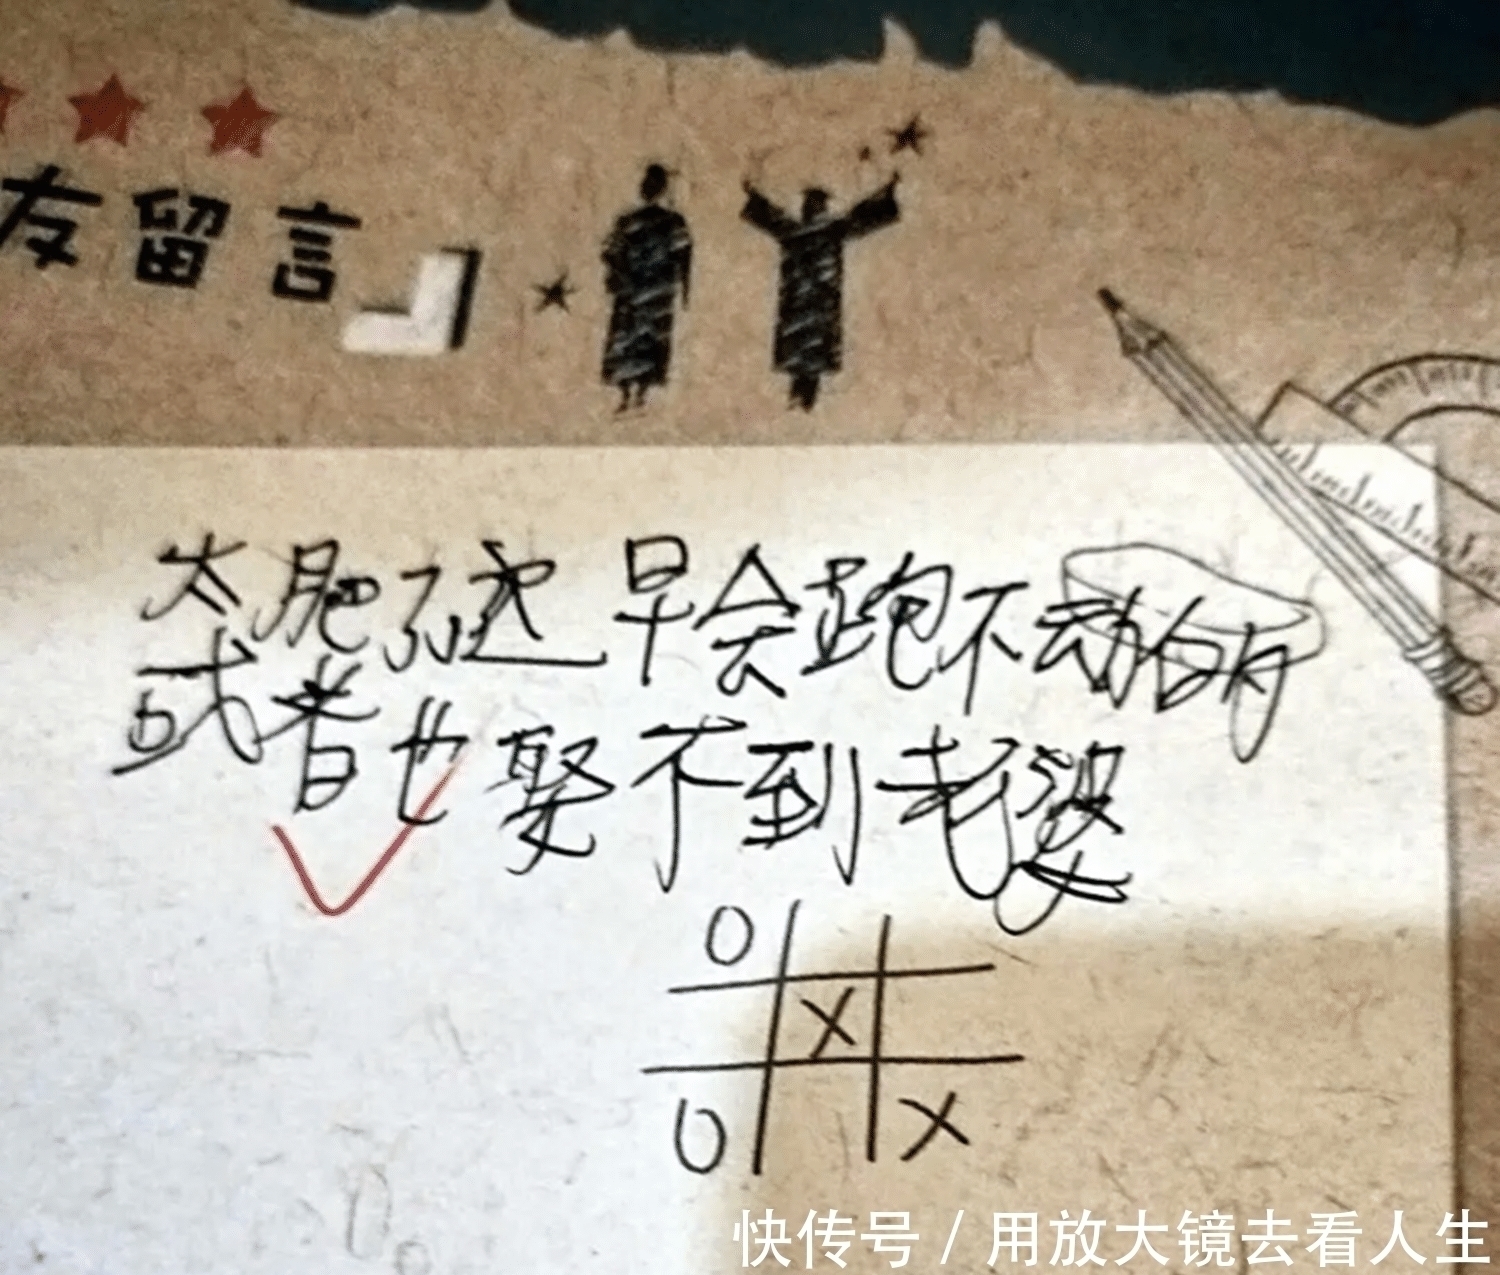 友留言
太肥了迟早会跑不动的
或者也娶不到老婆
O
X
O X
快传号 / 用放大镜去看人生